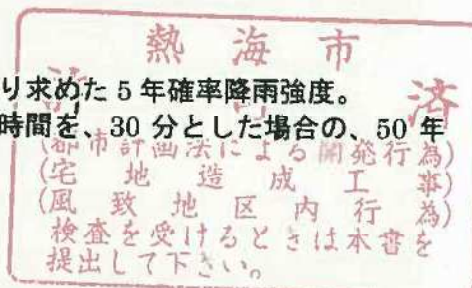 熱海市
り求めた5年確率降雨強度。
済
時間を、30分とした場合の、50年
(都市計画法による開発行為)
(宅地造成工事)
(風致地区内行為)
検査を受けるときは本書を
提出して下さい。